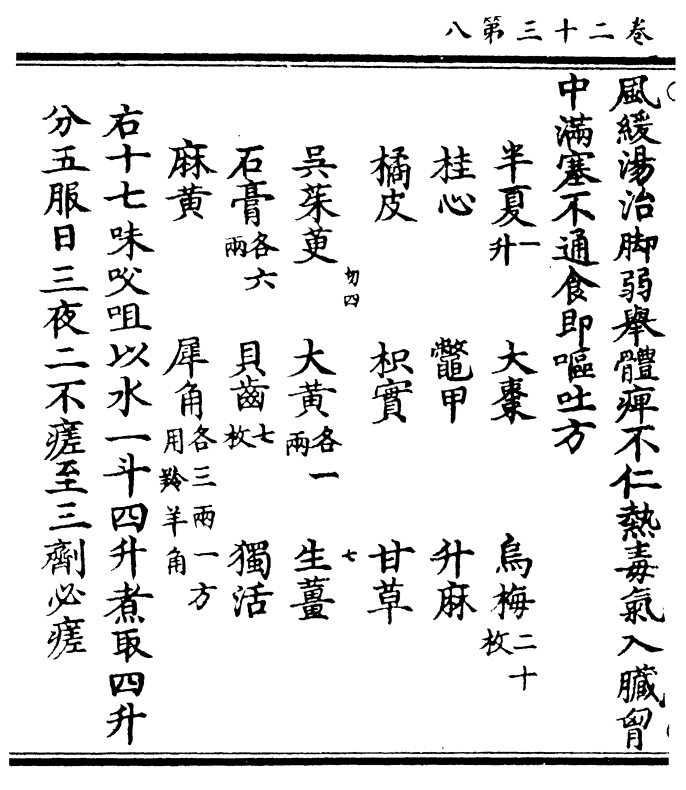 卷二十三第八
風緩湯治脚弱舉體痺不仁熱毒氣入臟胷
中滿塞不通食即嘔吐方
半夏一升 大棗 烏梅二十枚
桂心 鼈甲 升麻
橘皮 枳實 甘草
吳茱萸 大黃各一兩 生薑
石膏各六兩 貝齒七枚 獨活
麻黃 犀角各三兩一方用羚羊角
右十七味㕮咀以水一斗四升煮取四升
分五服日三夜二不瘥至三劑必瘥
刕四
七